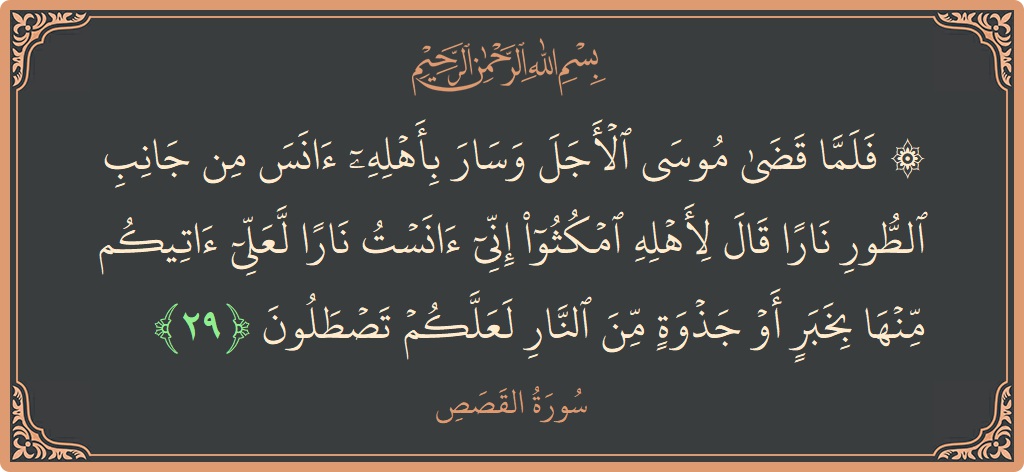 بِسْمِ اللَّهِ الرَّحْمَٰنِ الرَّحِيمِ
۞ فَلَمَّا قَضَىٰ مُوسَى ٱلْأَجَلَ وَسَارَ بِأَهْلِهِۦٓ ءَانَسَ مِن جَانِبِ
ٱلطُّورِ نَارًا قَالَ لِأَهْلِهِ ٱمْكُثُوٓا۟ إِنِّىٓ ءَانَسْتُ نَارًا لَّعَلِّىٓ ءَاتِيكُم
مِّنْهَا بِخَبَرٍ أَوْ جَذْوَةٍ مِّنَ ٱلنَّارِ لَعَلَّكُمْ تَصْطَلُونَ ﴿٢٩﴾
سُورَةُ القَصَصِ